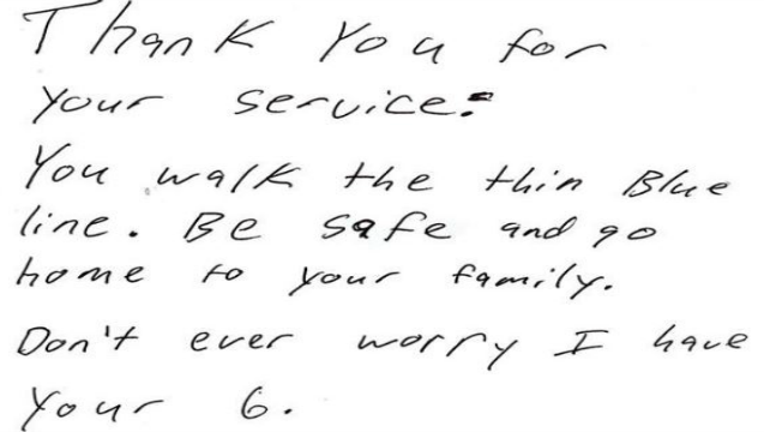 Thank You for
your service.
You walk the thin Blue
line. Be safe and go
home to your family.
Don't ever worry I have
your 6.